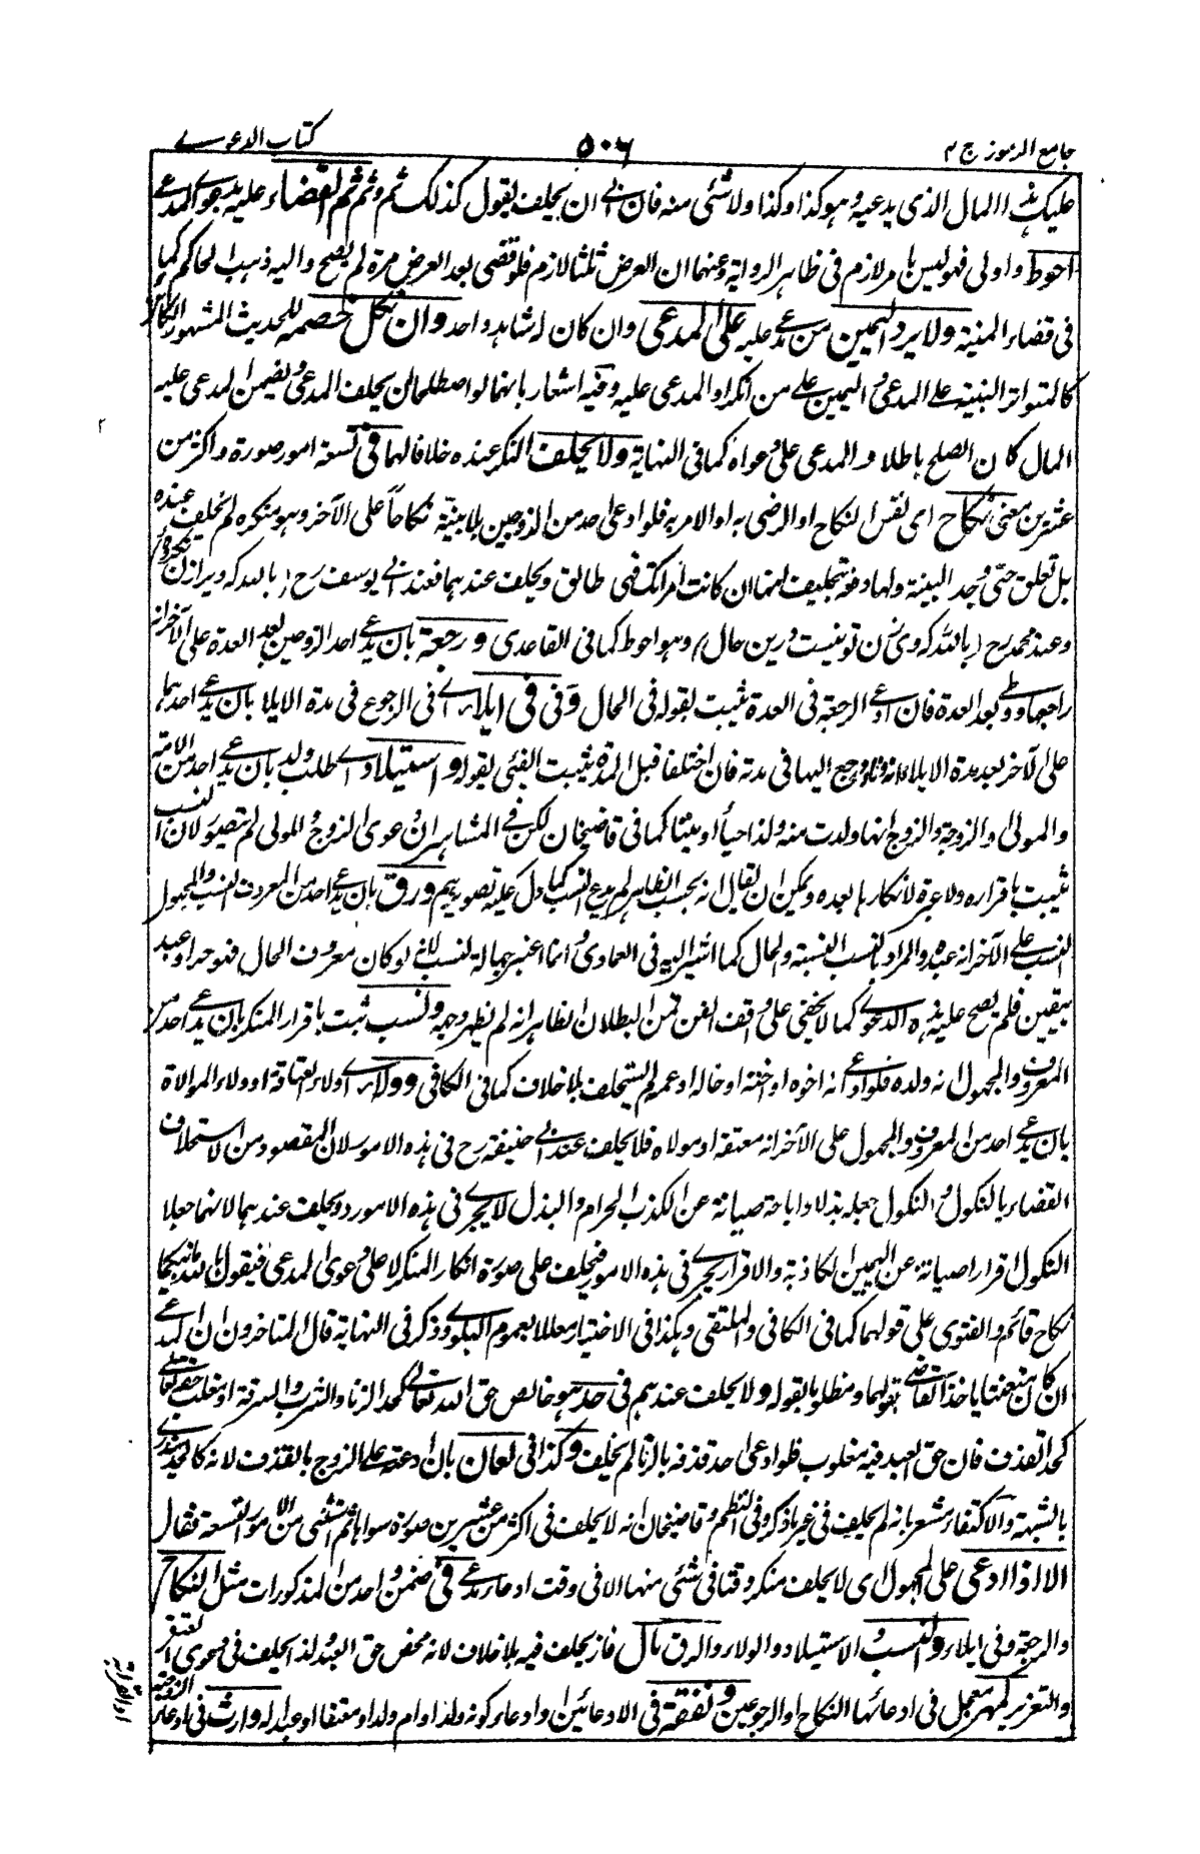 جامع الرموز ج ٢
٥٠٦
كتاب الدعوى
عليك هذا المال الذى يدعيه وهو كذا وكذا ولا شئى منه فان ابى ان يحلف يقول كذلك ثم وثم ثم القضاء عليه بدعوى المدعى
احوط واولى فهو ليس بامر لازم فى ظاهر الرواية وعنهما ان العرض ثلثا لازم فلو قضى بعد العرض مرة لم يصح واليه ذهب الحاكم كما
فى قضاء المنية ولا يرد اليمين من مدعى عليه على المدعى وان كان له شاهد واحد وان نكل خصمه للحديث المشهور الكائن
كالمتواتر البينة على المدعى واليمين على من انكر او المدعى عليه وفيه اشعار بانهما لو اصطلحا ان يحلف المدعى ويضمن المدعى عليه
المال كان الصلح باطلا والمدعى على دعواه كما فى النهاية ولا يحلف المنكر عنده خلافا لهما فى تسعة امور صورة واكثر من
عشرين معنى نكاح اى نفس النكاح او الرضى به او الامر به فلو ادعى احد من الزوجين بلا بينة نكاحاً على الآخر وهو منكره لم يحلف عنده
بل تعلق حتى وجد البينة ولها دفعه بتحليف انها ان كانت امرأتك فهى طالق ويحلف عندهما فعند ابى يوسف رح (بالله كه وى زن
وعند محمد رح (بالله كه وى زن تو نيست درين حال) وهو احوط كما فى القاعدى ورجعة بان يدعى احد الزوجين بعد العدة على الآخر انه
راجعها وطى بعد العدة فان ادعى الرجعة فى العدة يثبت بقوله فى الحال وفى فى ايلاء اى فى الرجوع فى مدة الايلا بان يدعى احدهما
على الآخر بعد مدة الايلا انه رجع اليها فى مدته فان اختلفا قبل المدة يثبت الفئى بقوله واستيلاد اى طلب ولد بان يدعى احد من الامة
والمولى والزوجة والزوج انها ولدت منه ولدا حياً او ميتا كما فى قاضيخان لكن فى المشاهير ان دعوى الزوج والمولى لم يتصور لان النسب
يثبت باقراره ولا عبرة لانكارها بعده ويمكن ان يقال انه بحسب الظاهر لم يدع النسب كما دل عليه تصويرهم ورق بان يدعى احد من المعروف النسب والمجهول
النسب على الآخر انه عبده والمراد بالنسب النسبة والحال كما اشير اليه فى العمادى وانما اعتبر جهالة النسب لانه لو كان معروف الحال فهو حر او عبد
بيقين فلم يصح عليه هذه الدعوى كما لا يخفى على واقف الفن فمن البطلان الظاهر انه لم يظهر وجهه ونسب ثبت باقرار المنكر بان يدعى احد من
المعروف والمجهول انه ولده فلو ادعى انه اخوه او اخته او خاله او عمه لم يستحلف بلا خلاف كما فى الكافى وولاء اى ولاء العتاقة او ولاء الموالاة
بان يدعى احد من المعروف والمجهول على الآخر انه معتقه او مولاه فلا يحلف عند ابى حنيفة رح فى هذه الامور لان المقصود من الاستحلاف
القضاء بالنكول والنكول جعله بذلا واباحة صيانة عن الكذب الحرام والبذل لا يجرى فى هذه الامور ويحلف عندهما لانهما جعلا
النكول اقرارا صيانة عن اليمين الكاذبة والاقرار يجرى فى هذه الامور فيحلف على صورة انكار المنكر لا على دعوى المدعى فيقول بالله ما بينكما
نكاح قائم والفتوى على قولهما كما فى الكافى والملتقى وهكذا فى الاختيار معللا بعموم البلوى وذكر فى النهاية قال المتاخرون ان المدعى
ان كان متعنتا ياخذ القاضى بقوله ومظلوما بقولهما ولا يحلف عندهم فى حد هو خالص حق الله تعالى كحد الزنا والشرب والسرقة او مغلب حقه تعالى
كحد القذف فان حق العبد فيه مغلوب فلو ادعى احد قذفه بالزنا لم يحلف وكذا فى لعان بان ادعت على الزوج بالقذف لانه كالحد يندرئ
بالشبهة والاكتفاء مشعر بانه لم يحلف فى غير ما ذكر وفى النظم وقاضيخان انه لا يحلف فى اكثر من عشرين صورة سواها ثم استثنى من الامور التسعة فقال
الا اذا ادعى على المجهول اى لا يحلف منكر وقتا فى شئى منها الا فى وقت ادعاء مدعى فى ضمن واحد من المذكورات مثل النكاح
والرجعة وفى ايلاء والنسب والاستيلاد والولاء والرق مال فانه يحلف فيه بلا خلاف لانه محض حق العبد ولذا يحلف فى دعوى العتق
والتعزير كمهر معجل فى ادعائها النكاح او الرجوعين ونفقة فى الادعائين او ادعاء كونه ولدا او ام ولد او معتقا او عبدا له وارث فى ادعاء
الزوجة